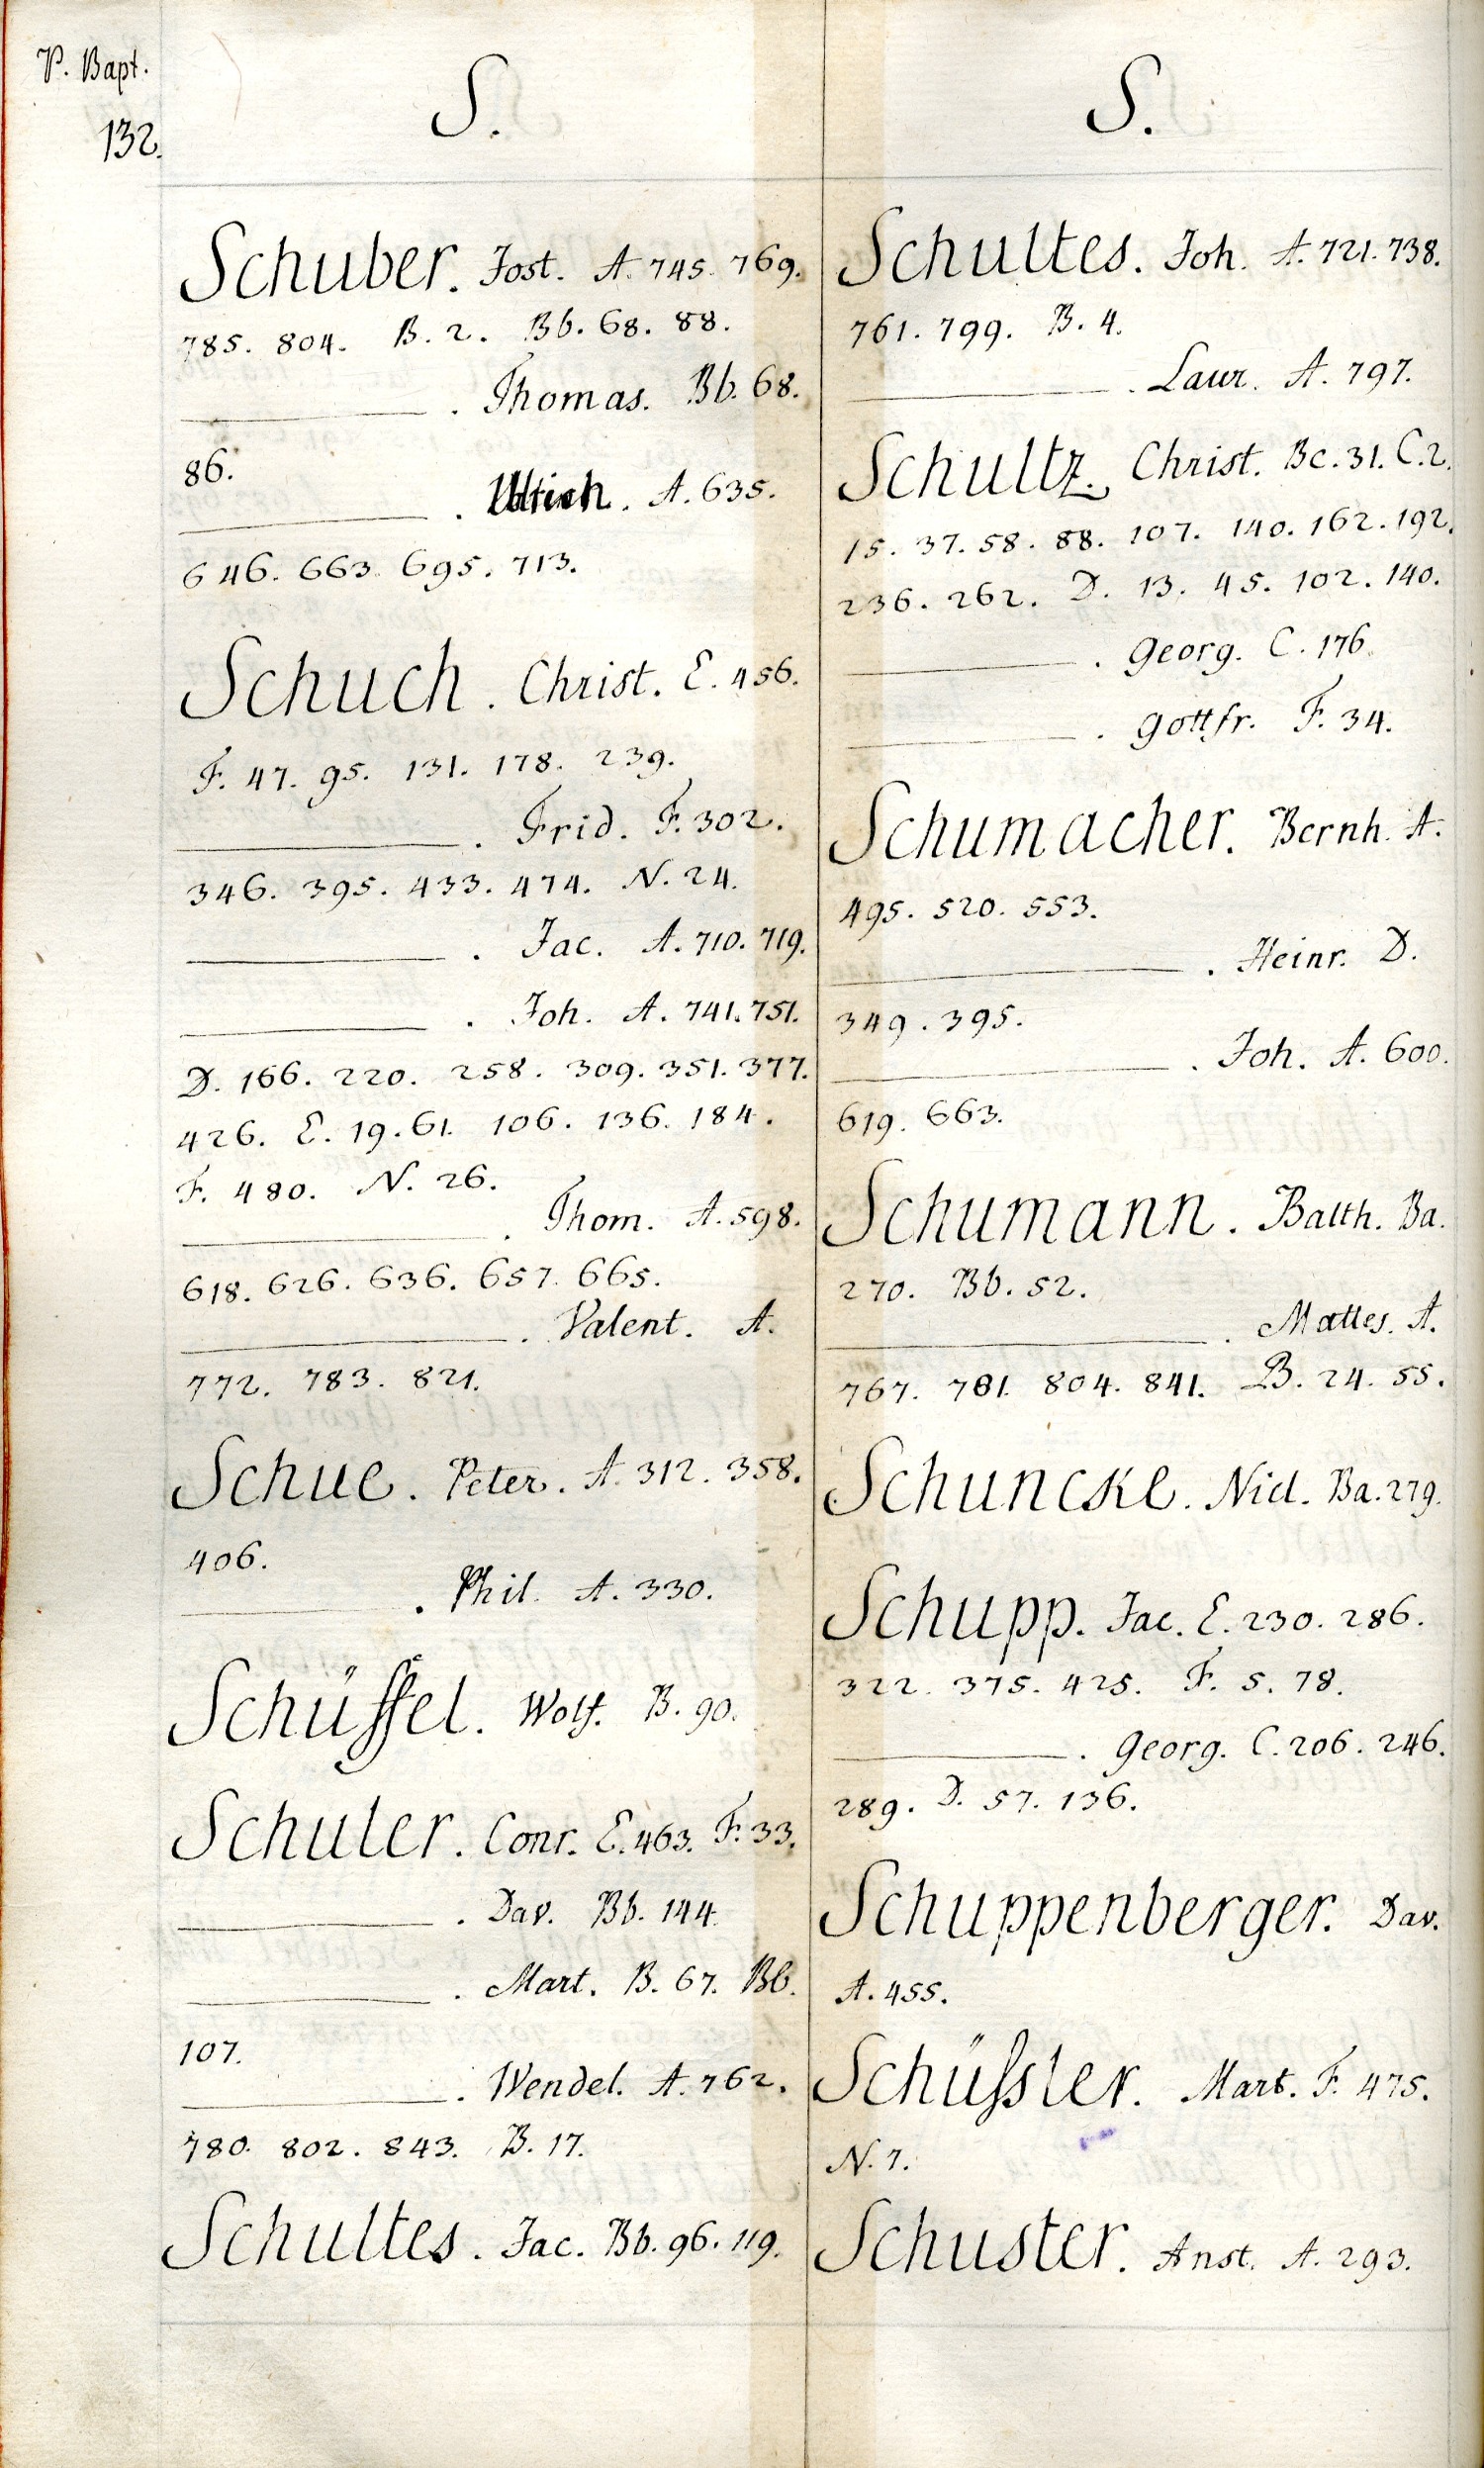 P. Bapt.
132.
S.
Schuber. Jost. A. 745. 769.
785. 804. B. 2. Bb. 68. 88.
———. Thomas. Bb. 68.
86.
———. Ulrich. A. 635.
646. 663. 695. 713.
Schuch. Christ. E. 456.
F. 47. 95. 131. 178. 239.
———. Frid. F. 302.
346. 395. 433. 474. N. 24.
———. Jac. A. 710. 719.
———. Joh. A. 741. 751.
D. 166. 220. 258. 309. 351. 377.
426. E. 19. 61. 106. 136. 184.
F. 480. N. 26.
———. Thom. A. 598.
618. 626. 636. 657. 665.
———. Valent. A.
772. 783. 821.
Schue. Peter. A. 312. 358.
406.
———. Phil. A. 330.
Schüffel. Wolf. B. 90.
Schuler. Conr. E. 463. F. 33.
———. Dav. Bb. 144.
———. Mart. B. 67. Bb.
107.
———. Wendel. A. 762.
780. 802. 843. B. 17.
Schultes. Jac. Bb. 96. 119.
S.
Schultes. Joh. A. 721. 738.
761. 799. B. 4.
———. Laur. A. 797.
Schultz. Christ. Bc. 31. C. 2.
15. 37. 58. 88. 107. 140. 162. 192.
236. 262. D. 13. 45. 102. 140.
———. Georg. C. 176.
———. Gottfr. F. 34.
Schumacher. Bernh. A.
495. 520. 553.
———. Heinr. D.
349. 395.
———. Joh. A. 600.
619. 663.
Schumann. Balth. Ba.
270. Bb. 52.
———. Mattes. A.
767. 781. 804. 841. B. 24. 55.
Schuncke. Nicl. Ba. 279.
Schupp. Jac. E. 230. 286.
322. 375. 425. F. 5. 78.
———. Georg. C. 206. 246.
289. D. 57. 136.
Schuppenberger. Dav.
A. 455.
Schüssler. Mart. F. 475.
N. 7.
Schuster. Anst. A. 293.